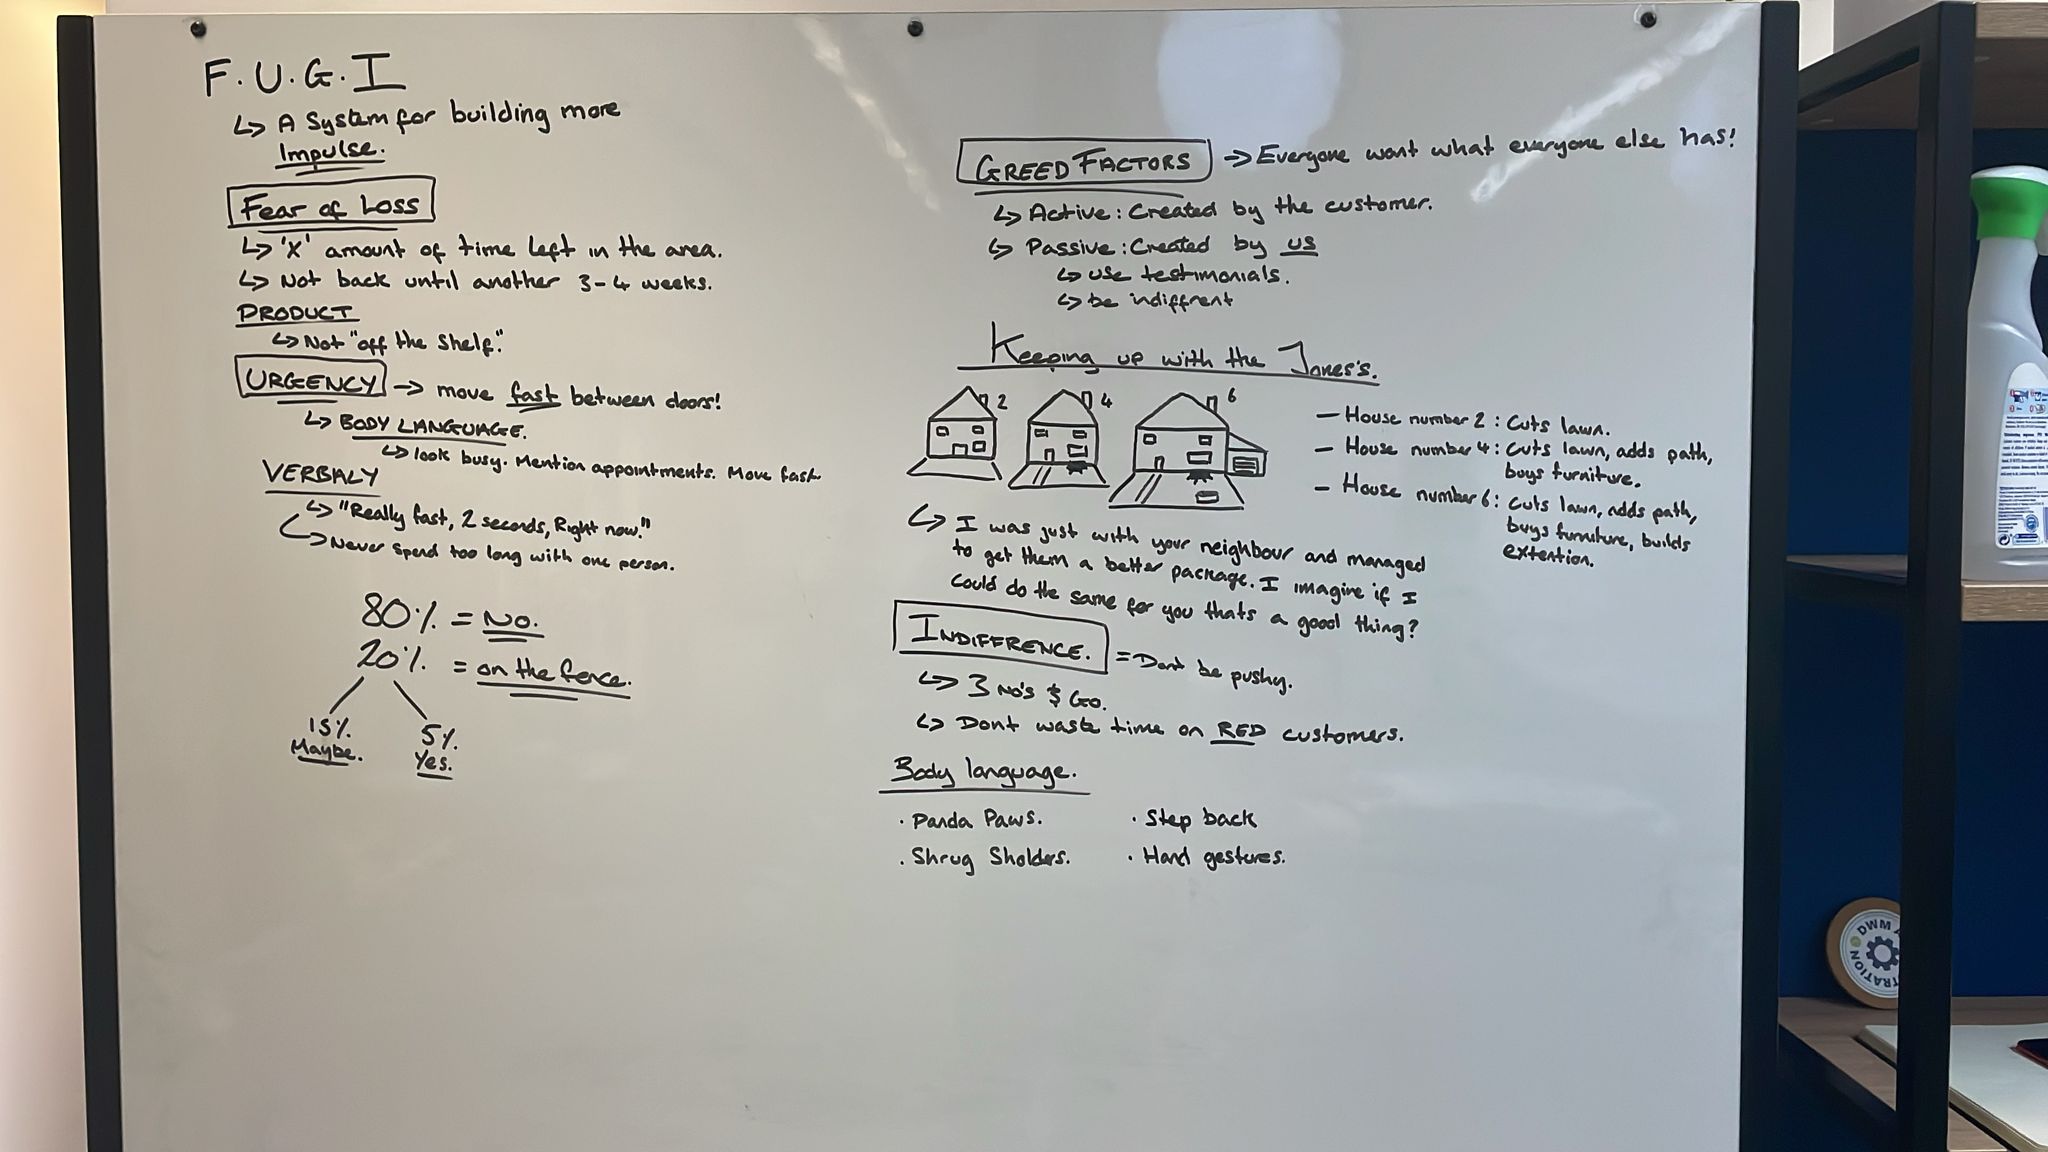 F.U.G.I
↳ A System for building more
Impulse.
Fear of Loss
↳ 'X' amount of time left in the area.
↳ Not back until another 3-4 weeks.
PRODUCT
↳ Not "off the shelf".
URGENCY → move fast between doors!
↳ BODY LANGUAGE.
↳ look busy. Mention appointments. Move fast.
VERBALY
↳ "Really fast, 2 seconds, Right now."
↳ Never spend too long with one person.
80% = No.
20% = on the fence.
15% 5%
Maybe. Yes.
GREED FACTORS → Everyone want what everyone else has!
↳ Active: Created by the customer.
↳ Passive: Created by us
↳ use testimonials.
↳ be indiffrent
Keeping up with the Jones's.
2 4 6
– House number 2: Cuts lawn.
– House number 4: Cuts lawn, adds path,
buys furniture.
– House number 6: Cuts lawn, adds path,
buys furniture, builds
extention.
↳ I was just with your neighbour and managed
to get them a better package. I imagine if I
could do the same for you thats a good thing?
INDIFFRENCE. = Dont be pushy.
↳ 3 No's & Go.
↳ Dont waste time on RED customers.
Body language.
· Panda Paws. · Step back
· Shrug Sholders. · Hand gestures.
DWM